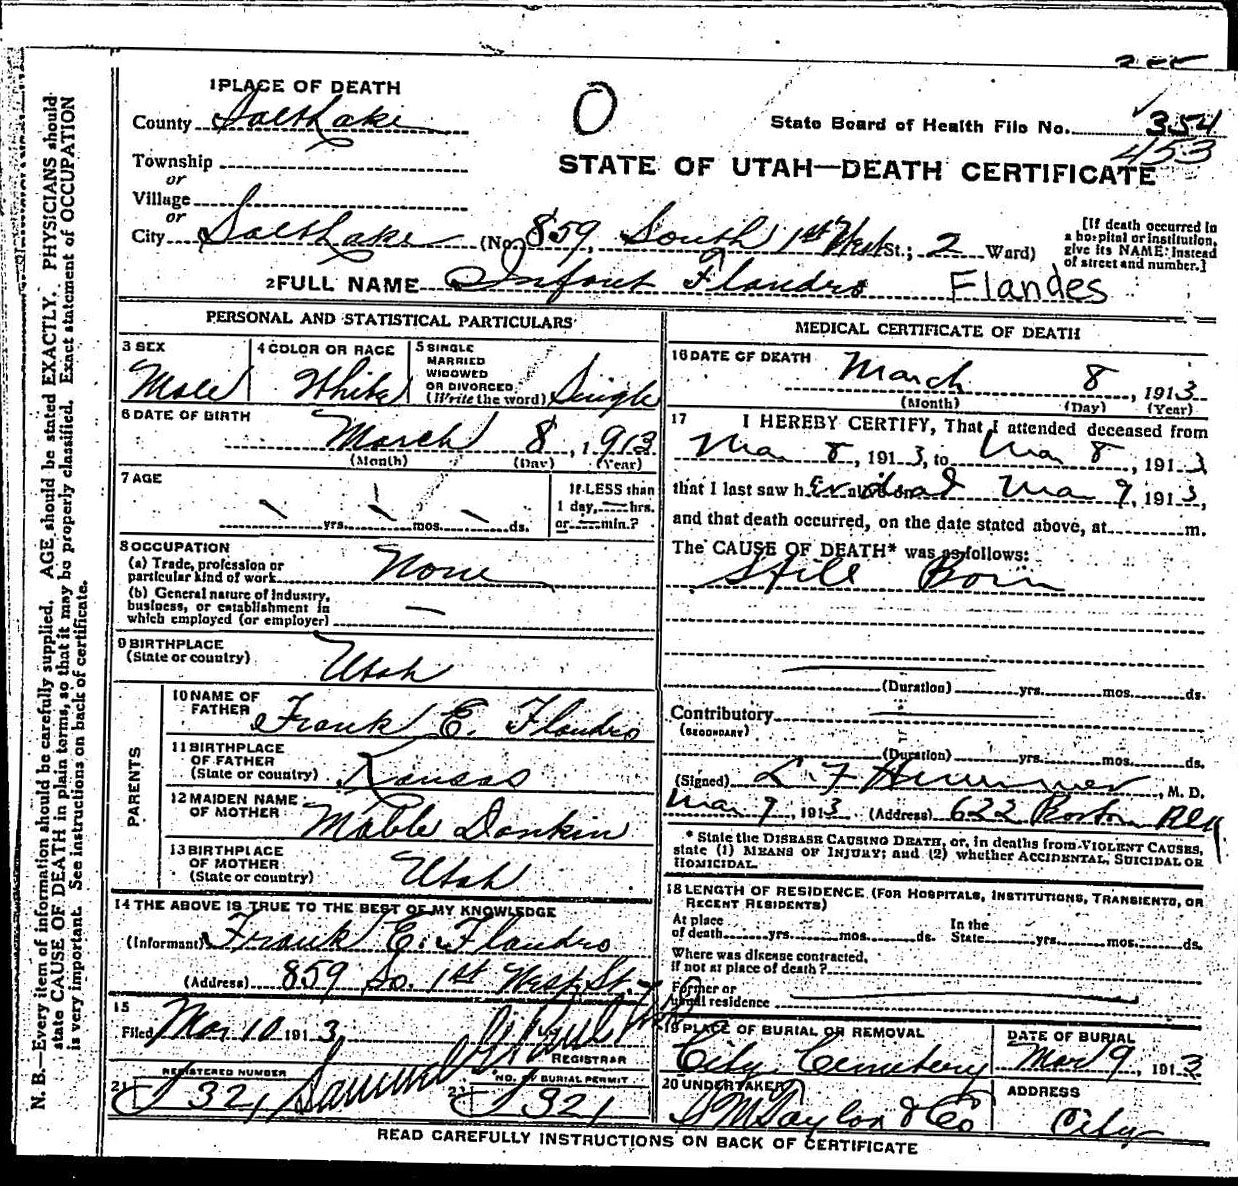 1 PLACE OF DEATH
County Salt Lake
State Board of Health File No. 354
453
Township
or
Village
or
STATE OF UTAH—DEATH CERTIFICATE
City Salt Lake (No. 859, South 1st West St.; 2 Ward)
[If death occurred in a hospital or institution, give its NAME instead of street and number.]
2 FULL NAME Infant Flandro Flandes
PERSONAL AND STATISTICAL PARTICULARS
3 SEX Male
4 COLOR OR RACE White
5 SINGLE MARRIED WIDOWED OR DIVORCED (Write the word) Single
6 DATE OF BIRTH
March 8, 1913
(Month) (Day) (Year)
7 AGE
yrs. mos. ds.
If LESS than 1 day, hrs. or min.?
8 OCCUPATION
(a) Trade, profession or particular kind of work None
(b) General nature of industry, business, or establishment in which employed (or employer) —
9 BIRTHPLACE
(State or country) Utah
PARENTS
10 NAME OF FATHER Frank E. Flandro
11 BIRTHPLACE OF FATHER (State or country) Kansas
12 MAIDEN NAME OF MOTHER Mable Dankin
13 BIRTHPLACE OF MOTHER (State or country) Utah
14 THE ABOVE IS TRUE TO THE BEST OF MY KNOWLEDGE
(Informant) Frank E. Flandro
(Address) 859 So. 1st West St.
15
Filed Mar 10 1913
REGISTRAR
REGISTERED NUMBER
21 J 321
NO. BURIAL PERMIT
22 J 321
MEDICAL CERTIFICATE OF DEATH
16 DATE OF DEATH March 8, 1913
(Month) (Day) (Year)
17 I HEREBY CERTIFY, That I attended deceased from
Mar 8, 1913, to Mar 8, 1913
that I last saw h er alive on dead Mar 9, 1913,
and that death occurred, on the date stated above, at m.
The CAUSE OF DEATH* was as follows:
Still Born
(Duration) yrs. mos. ds.
Contributory
(SECONDARY)
(Duration) yrs. mos. ds.
(Signed) L. F. Hummer, M. D.
Mar 9, 1913 (Address) 622 Boston Bldg
* State the DISEASE CAUSING DEATH, or, in deaths from VIOLENT CAUSES, state (1) MEANS OF INJURY; and (2) whether ACCIDENTAL, SUICIDAL OR HOMICIDAL.
18 LENGTH OF RESIDENCE (FOR HOSPITALS, INSTITUTIONS, TRANSIENTS, OR RECENT RESIDENTS)
At place of death yrs. mos. ds. In the State yrs. mos. ds.
Where was disease contracted, if not at place of death?
Former or usual residence
19 PLACE OF BURIAL OR REMOVAL
City Cemetery
DATE OF BURIAL
Mar 9, 1913
20 UNDERTAKER
S M Taylor & Co
ADDRESS
City
READ CAREFULLY INSTRUCTIONS ON BACK OF CERTIFICATE
N. B.—Every item of information should be carefully supplied. AGE should be stated EXACTLY. PHYSICIANS should
state CAUSE OF DEATH in plain terms, so that it may be properly classified. Exact statement of OCCUPATION
is very important. See instructions on back of certificate.